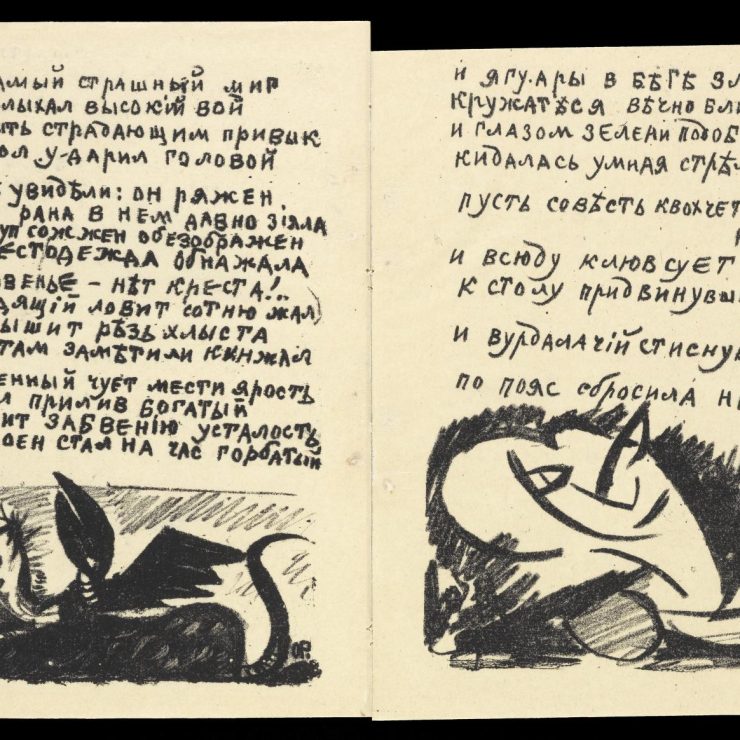 амый страшный миг
лыхал высокій вой
ыть страдающим привык
ол у-дарил головой
увидѣли: он ряжен,
рана в нем давно зіяла
уп сожжен обезображен
естодежда обнажала
овенье – нѣт креста!..
дящій ловит сотню жал
ышит рѣзь хлыста
там замѣтили кинжал
енный чует мести ярость
прилив богатый
ит забвенію усталость
оен стал на час горбатый
ОР.
и ягу-ары в бѣгѣ зл
кружатъся вѣчно бли
и глазом зелени подоб
кидалась умная стрѣл
пусть совѣсть квохчет
и всюду клюв сует
к столу придвинувш
и вурдалачій стиснув
по пояс сбросила н